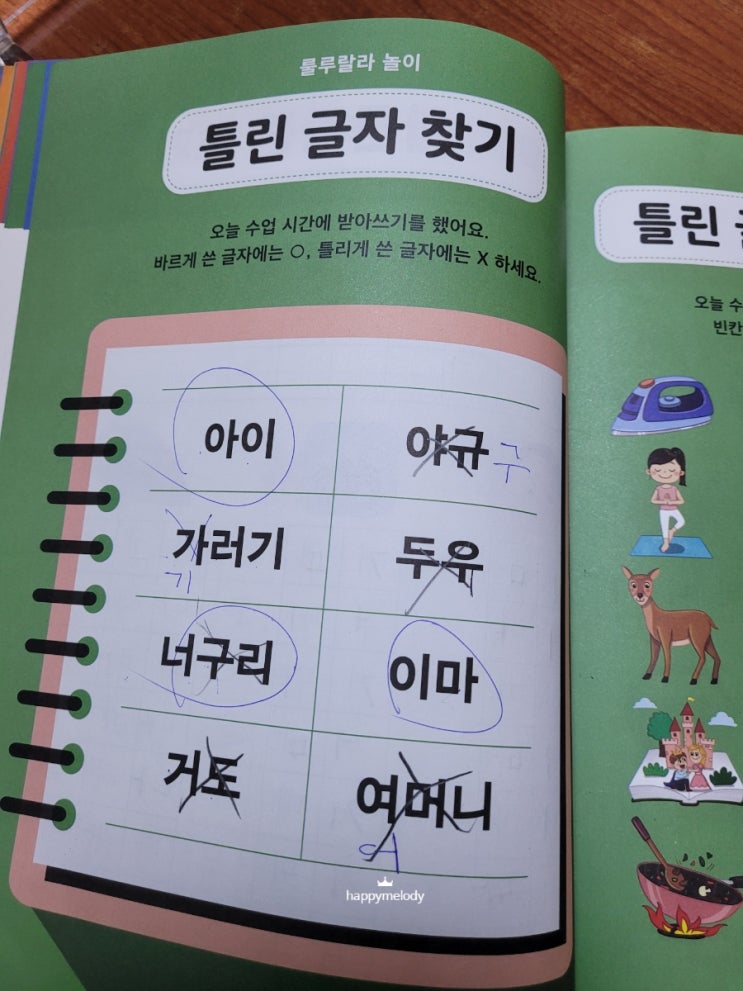 룰루랄라 놀이
틀린 글자 찾기
오늘 수업 시간에 받아쓰기를 했어요.
바르게 쓴 글자에는 O, 틀리게 쓴 글자에는 X 하세요.
아이 야규 구
가러기 두우
기
너구리 이마
거도 여머니
어
happymelody
틀린
오늘 수
빈칸